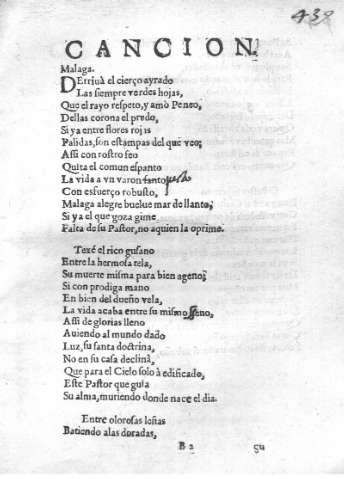 438
CANCION.
Malaga.
DErriuà el cierço ayrado
Las siempre verdes hojas,
Que el rayo respeto, y amò Peneo,
Dellas corona el prado,
Si ya entre flores rojas
Palidas, son estampas del que veo;
Assi con rostro feo
Quita el comun espanto
La vida a vn varon santo
Con esfuerço robusto,
Malaga alegre buelue mar de llanto;
Si ya el que goza gime
Falta de su Pastor, no a quien la oprime.
Texé el rico gusano
Entre la hermosa tela,
Su muerte misma para bien ageno;
Si con prodiga mano
En bien del dueño vela,
La vida acaba entre su mismo seno,
Assi de glorias lleno
Auiendo al mundo dado
Luz, su santa doctrina,
No en su casa declinà,
Que para el Cielo solo à edificado,
Este Pastor que guia
Su alma, muriendo donde nace el dia.
Entre olorosas lestias
Batiendo alas doradas,
B 2 çu